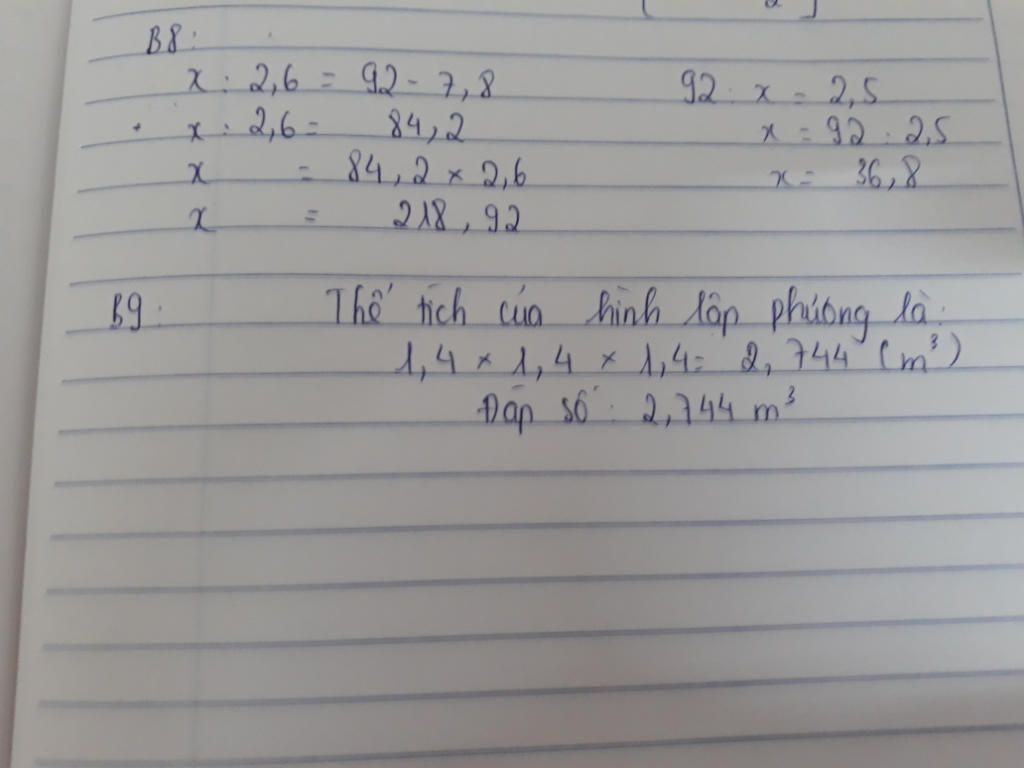 2
B8:
x : 2,6 = 92 - 7,8
x : 2,6 = 84,2
x = 84,2 × 2,6
x = 218,92
92 : x = 2,5
x = 92 : 2,5
x = 36,8
B9: Thể tích của hình lập phương là:
1,4 × 1,4 × 1,4 = 2,744 (m³)
Đáp số : 2,744 m³